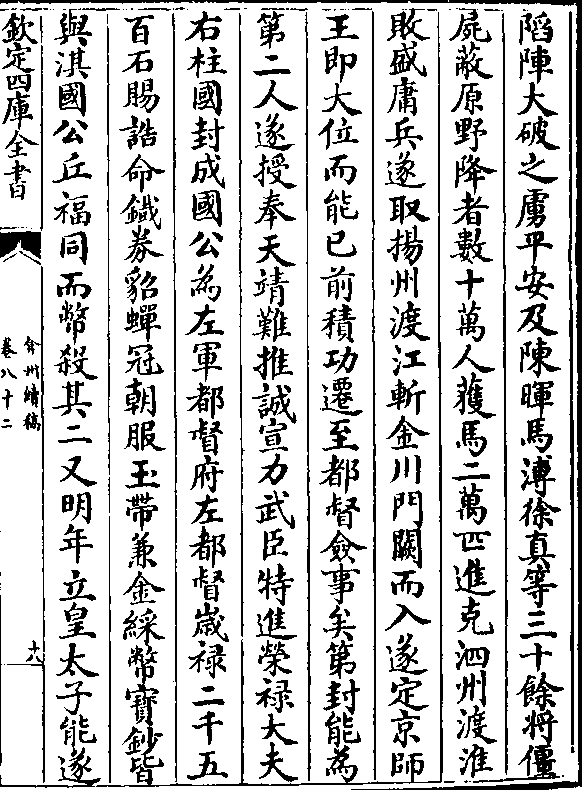 陷陣大破之虜平安及陳暉馬溥徐真等三十餘將僵
屍蔽原野降者數十萬人獲馬二萬匹進克泗州渡淮
敗盛庸兵遂取揚州渡江斬金川門闗而入遂定京師
王即大位而能已前積功遷至都督僉事矣第封能為
第二人遂授奉天靖難推誠宣力武臣特進榮禄大夫
右柱國封成國公為左軍都督府左都督歳禄二千五
百石賜誥命鐵券貂蟬冠朝服玉帶兼金綵幣寳鈔皆
與淇國公丘福同而幣殺其二又明年立皇太子能遂
欽定四庫全書
弇州續稿
卷八十二
十八